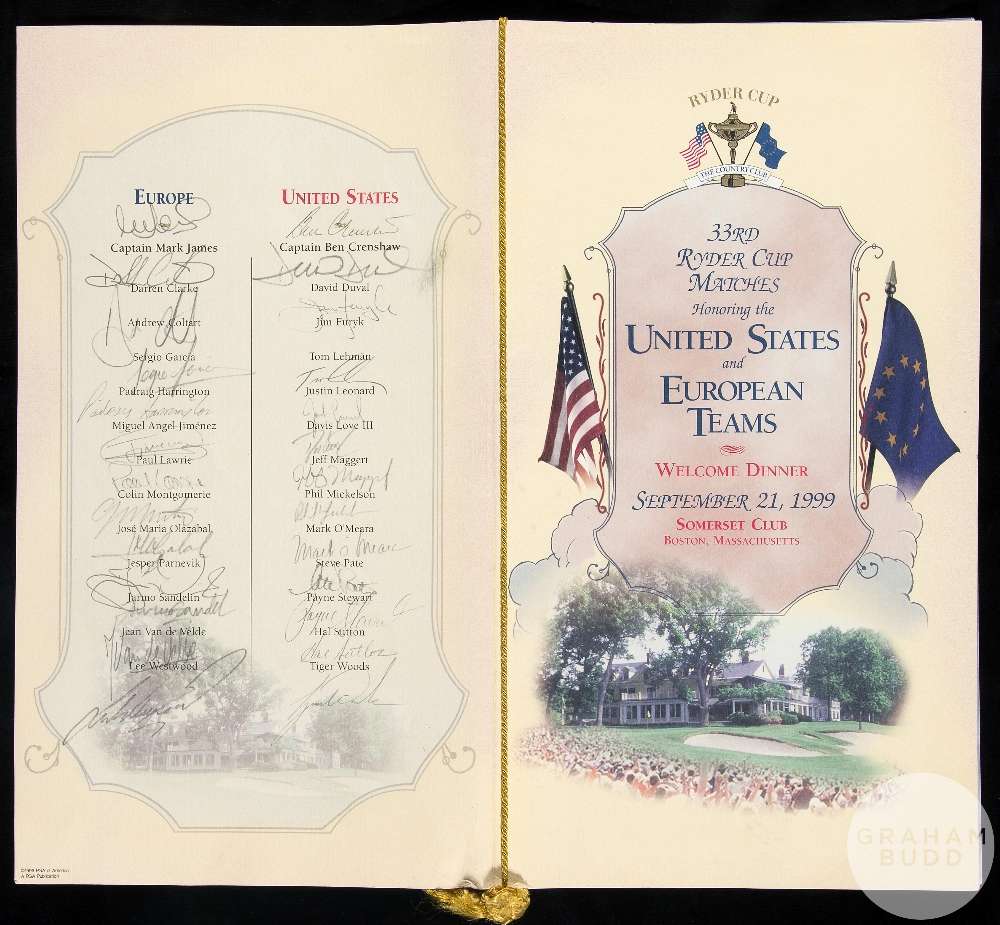 EUROPE
Captain Mark James
Darren Clarke
Andrew Coltart
Sergio Garcia
Padraig Harrington
Miguel Angel Jiménez
Paul Lawrie
Colin Montgomerie
José Maria Olazabal
Jesper Parnevik
Jarmo Sandelin
Jean Van de Velde
Lee Westwood
UNITED STATES
Ben Crenshaw
Captain Ben Crenshaw
David Duval
David Duval
Jim Furyk
Jim Furyk
Tom Lehman
Justin Leonard
Davis Love III
Jeff Maggert
Jeff Maggert
Phil Mickelson
Mark O'Meara
Mark O'Meara
Steve Pate
Payne Stewart
Payne Stewart
Hal Sutton
Hal Sutton
Tiger Woods
©1999 PGA of America
A PGA Publication
RYDER CUP
THE COUNTRY CLUB
33RD
RYDER CUP
MATCHES
Honoring the
UNITED STATES
and
EUROPEAN
TEAMS
WELCOME DINNER
SEPTEMBER 21, 1999
SOMERSET CLUB
BOSTON, MASSACHUSETTS
GRAHAM
BUDD